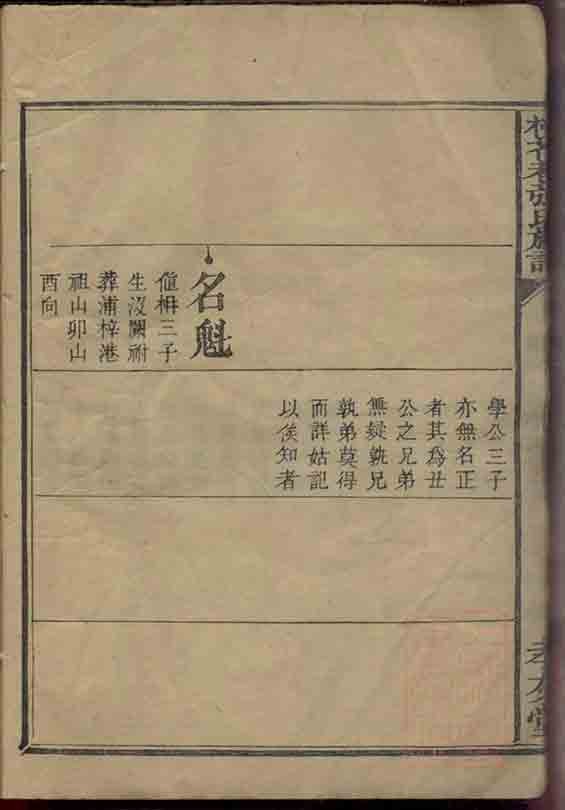 張氏族譜
孝友堂
名魁
三子
生沒闕祔
葬浦梓港
祖山卯山
酉向
學公三子
亦無名正
者其為丑
公之兄弟
無疑孰兄
孰弟莫得
而詳姑記
以俟知者